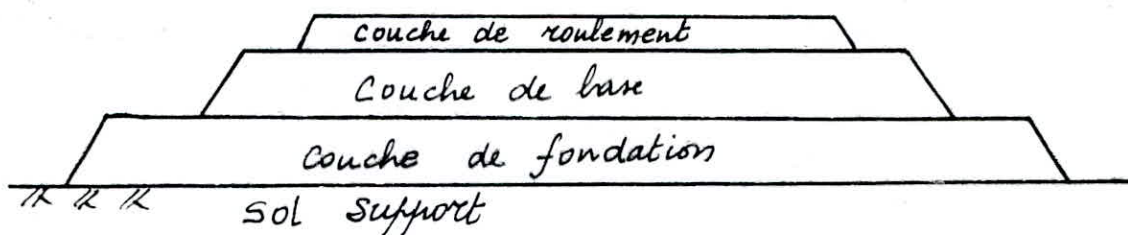 couche de roulement
Couche de base
Couche de fondation
Sol Support